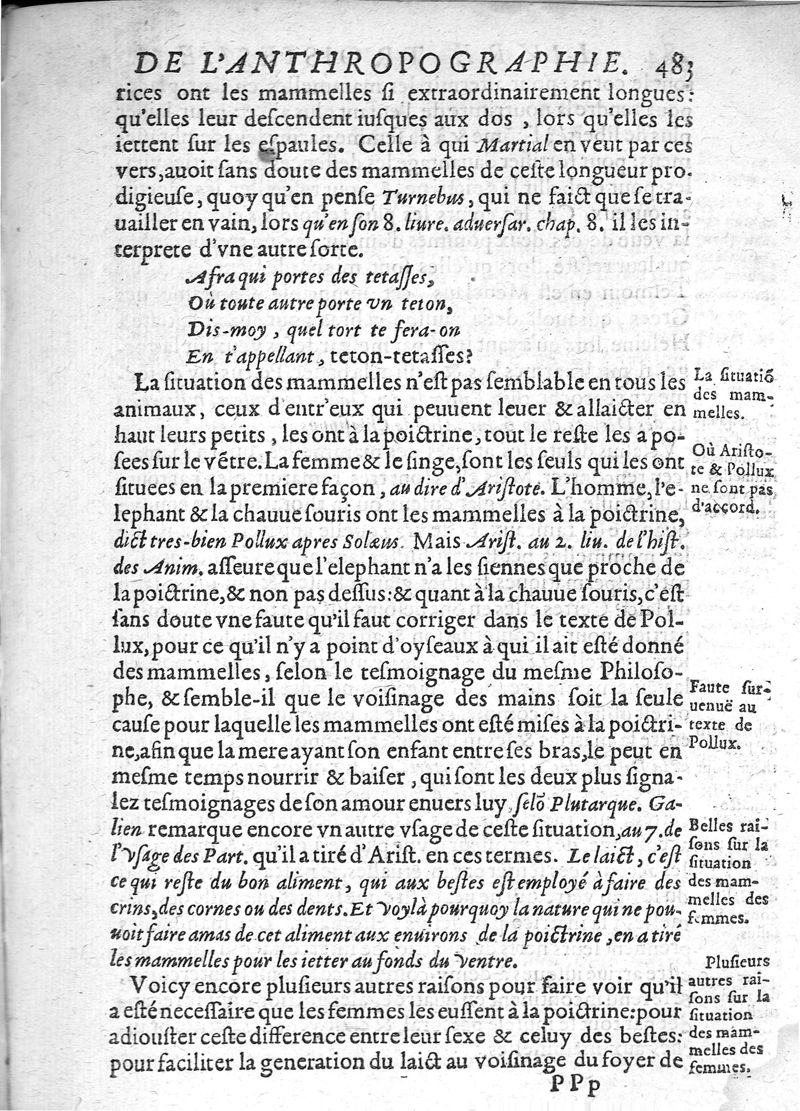 DE L'ANTHROPOGRAPHIE. 483
rices ont les mammelles ſi extraordinairement longues:
qu'elles leur deſcendent iuſques aux dos, lors qu'elles les
iettent ſur les eſpaules. Celle à qui Martial en veut par ces
vers, auoit ſans doute des mammelles de ceſte longueur pro-
digieuſe, quoy qu'en penſe Turnebus, qui ne faict que ſe tra-
uailler en vain, lors qu'en ſon 8. liure. aduerſar. chap. 8. il les in-
terprete d'vne autre ſorte.
Afra qui portes des tetaſſes,
Où toute autre porte vn teton,
Dis-moy, quel tort te fera-on
En t'appellant, teton-tetaſſes?
La ſituation des mammelles n'eſt pas ſemblable en tous les
animaux, ceux d'entr'eux qui peuuent leuer & allaicter en
haut leurs petits, les ont à la poictrine, tout le reſte les a po-
ſees ſur le vẽtre. La femme & le ſinge, ſont les ſeuls qui les ont
ſituees en la premiere façon, au dire d'Ariſtote. L'homme, l'e-
lephant & la chauue ſouris ont les mammelles à la poictrine,
dict tres-bien Pollux apres Solæus. Mais Ariſt. au 2. liu. de l'hiſt.
des Anim. aſſeure que l'elephant n'a les ſiennes que proche de
la poictrine, & non pas deſſus: & quant à la chauue ſouris, c'eſt
ſans doute vne faute qu'il faut corriger dans le texte de Pol-
lux, pour ce qu'il n'y a point d'oyſeaux à qui il ait eſté donné
des mammelles, ſelon le teſmoignage du meſme Philoſo-
phe, & ſemble-il que le voiſinage des mains ſoit la ſeule
cauſe pour laquelle les mammelles ont eſté miſes à la poictri-
ne, afin que la mere ayant ſon enfant entre ſes bras, le peut en
meſme temps nourrir & baiſer, qui ſont les deux plus ſigna-
lez teſmoignages de ſon amour enuers luy ſelõ Plutarque. Ga-
lien remarque encore vn autre vſage de ceſte ſituation, au 7. de
l'Vſage des Part. qu'il a tiré d'Ariſt. en ces termes. Le laict, c'eſt
ce qui reſte du bon aliment, qui aux beſtes eſt employé à faire des
crins, des cornes ou des dents. Et voylà pourquoy la nature qui ne pou-
uoit faire amas de cet aliment aux enuirons de la poictrine, en a tiré
les mammelles pour les ietter au fonds du ventre.
Voicy encore pluſieurs autres raiſons pour faire voir qu'il
a eſté neceſſaire que les femmes les euſſent à la poictrine: pour
adiouſter ceſte difference entre leur ſexe & celuy des beſtes:
pour faciliter la generation du laict au voiſinage du foyer de
PPp
La ſituatiõ
des mam-
melles.
Où Ariſto-
te & Pollux
ne ſont pas
d'accord.
Faute ſur-
uenuë au
texte de
Pollux.
Belles rai-
ſons ſur la
ſituation
des mam-
melles des
femmes.
Pluſieurs
autres rai-
ſons ſur la
ſituation
des mam-
melles des
femmes.